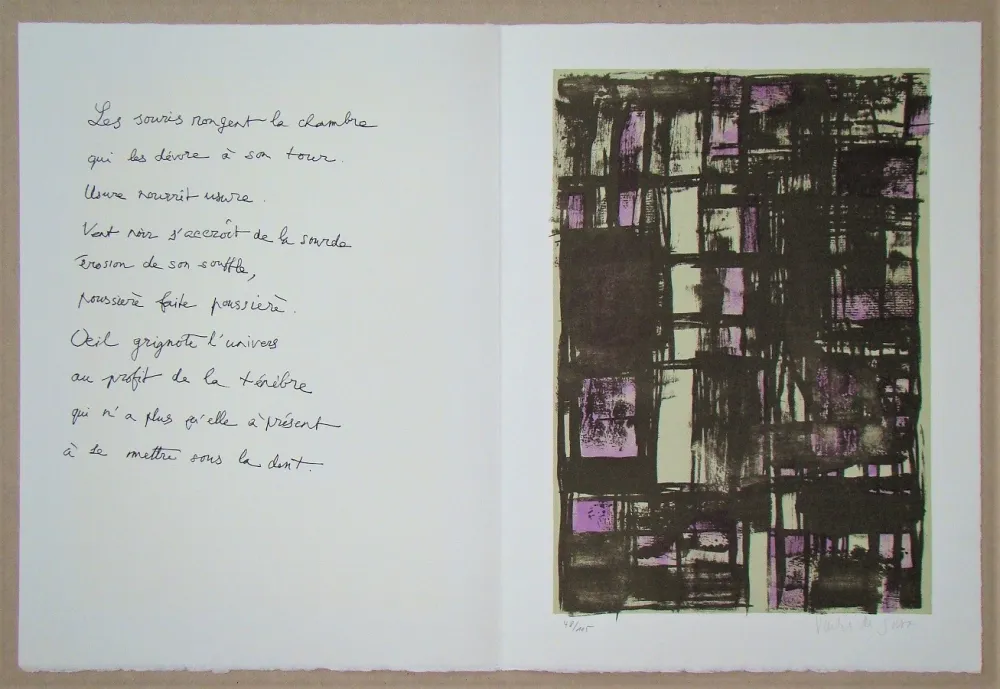 Les souris rongent la chambre
qui les dévore à son tour.
Usure nourrit usure.
Vent noir s'accroît de la sourde
érosion de son souffle,
poussière faite poussière.
Oeil grignote l'univers
au profit de la ténèbre
qui n'a plus qu'elle à présent
à se mettre sous la dent.
48/105